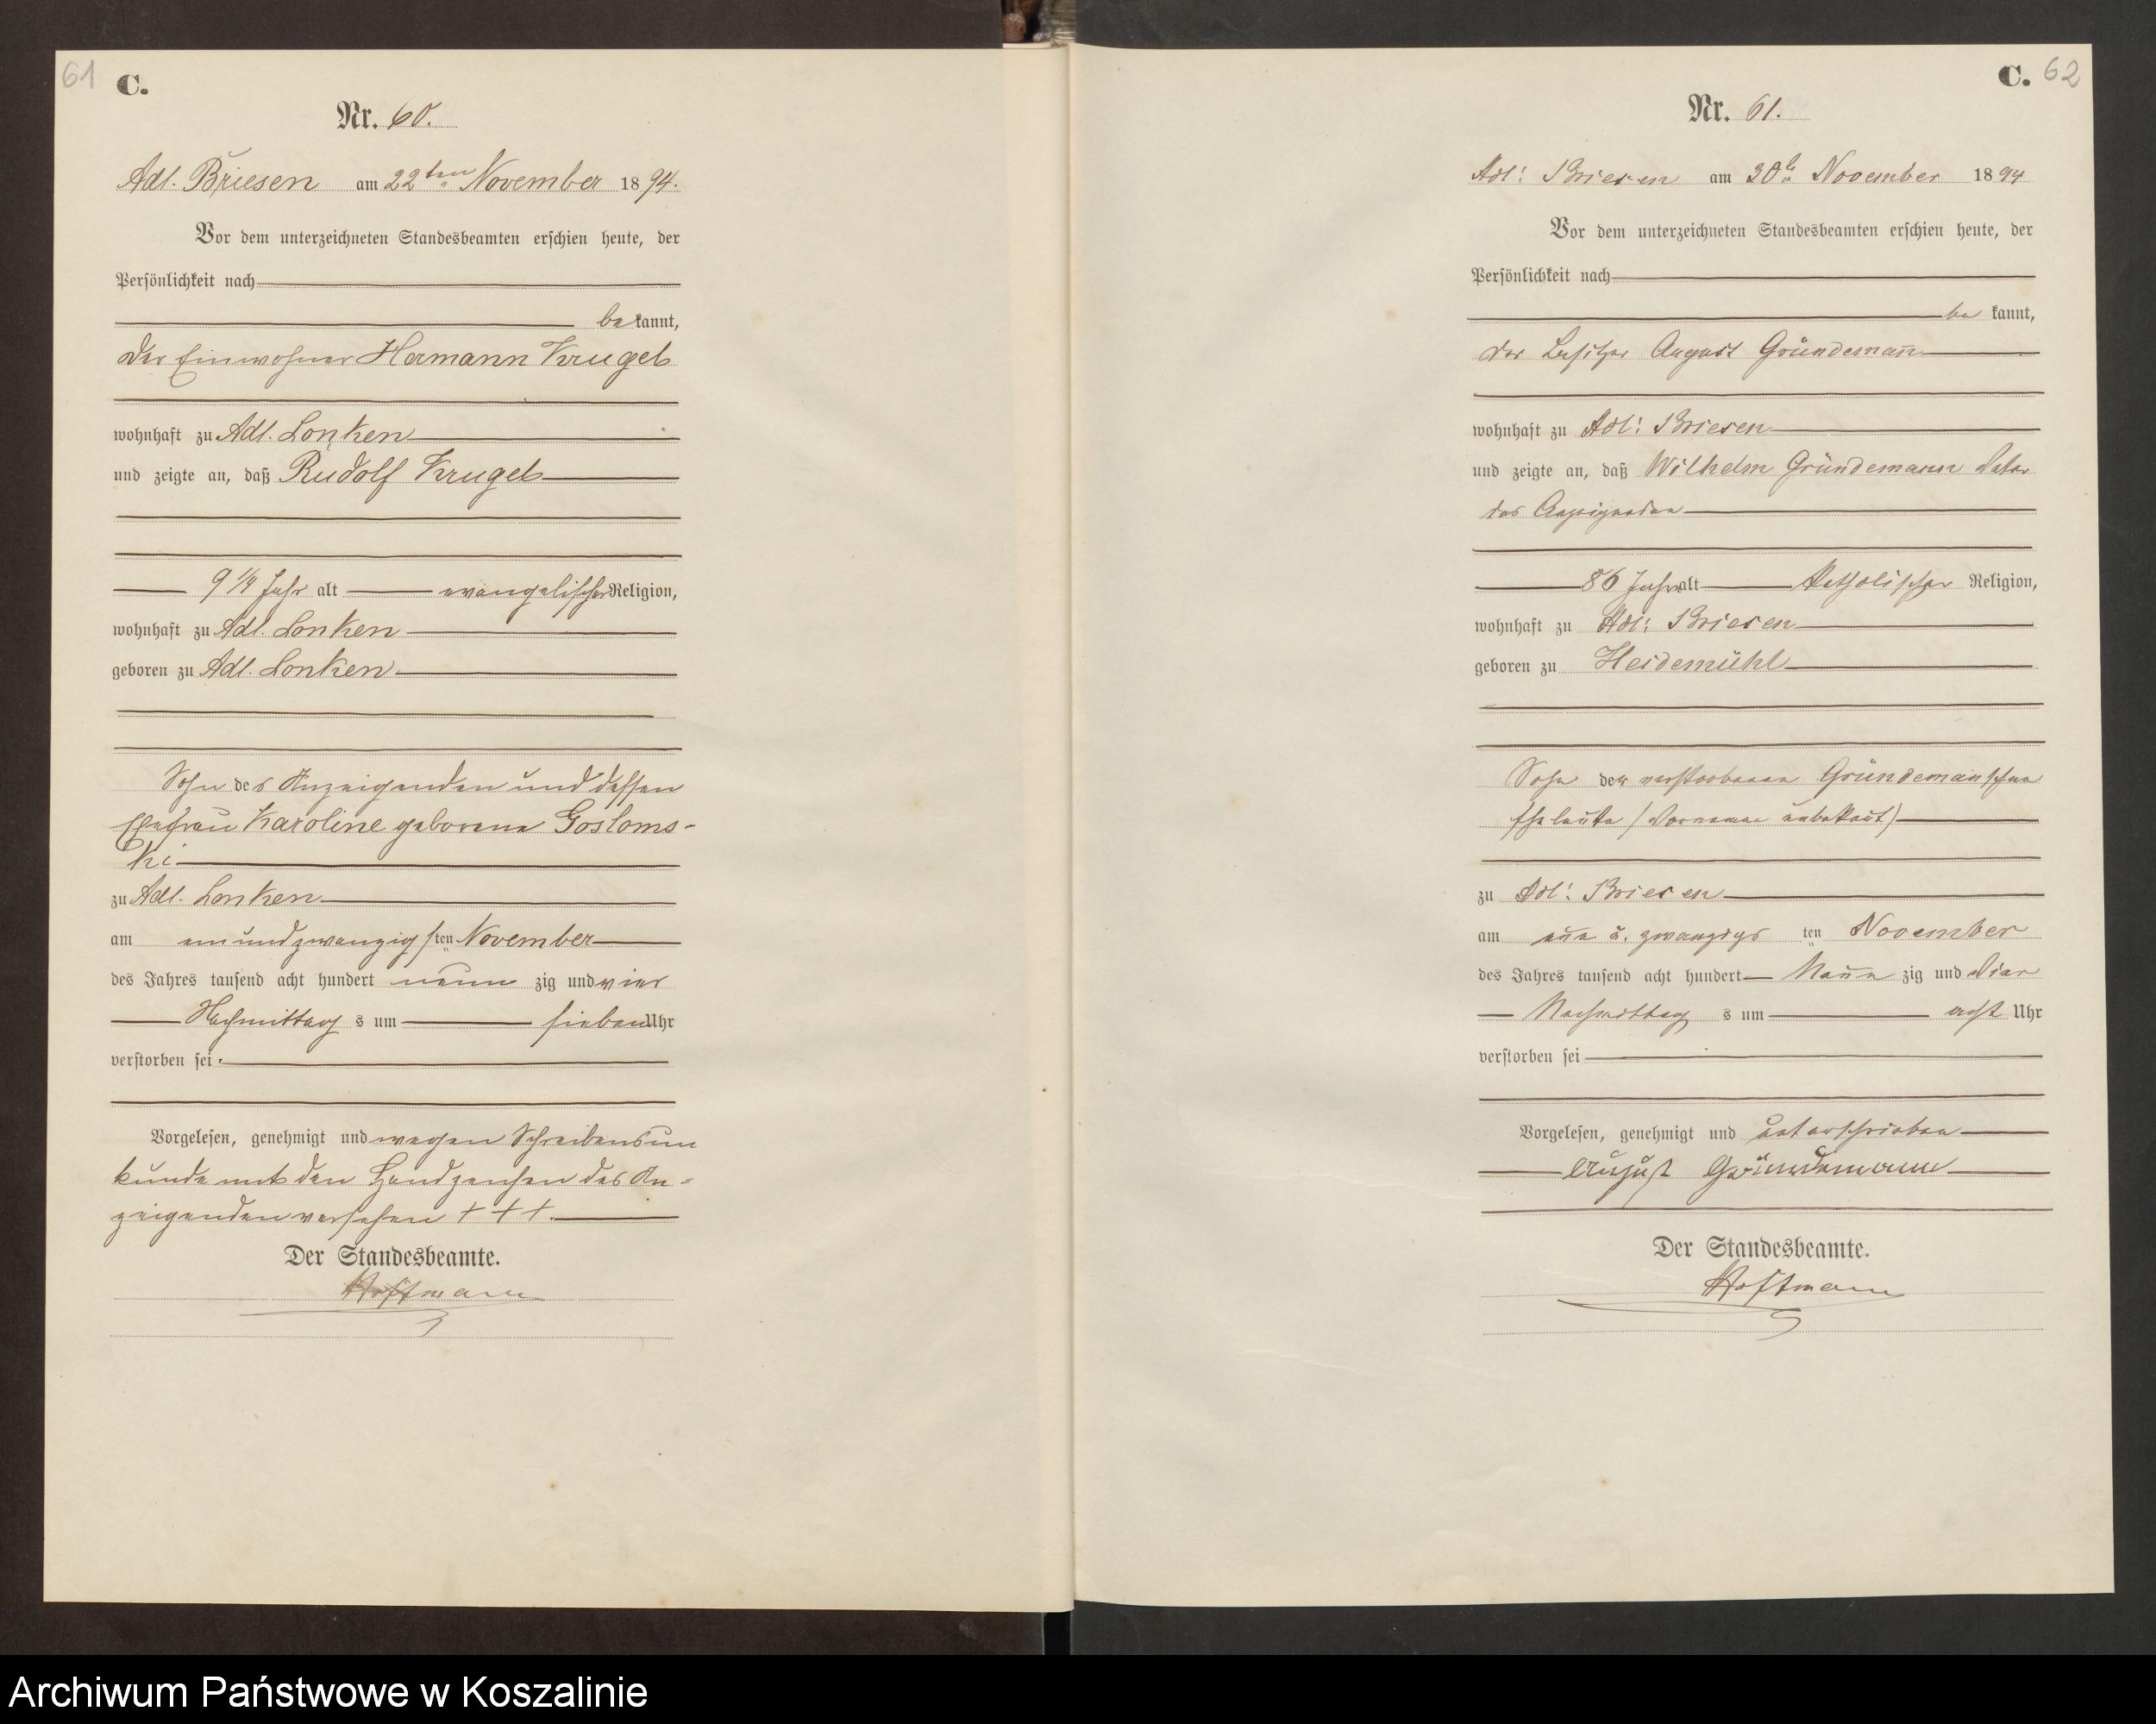 61
C.
Nr. 60.
Adl. Briesen am 22ten November 1894.
Vor dem unterzeichneten Standesbeamten erschien heute, der
Persönlichkeit nach
bekannt,
der Einwohner Hermann Krugel
wohnhaft zu Adl. Lonken
und zeigte an, daß Rudolf Krugel
9 1/4 Jahr alt evangelischer Religion,
wohnhaft zu Adl. Lonken
geboren zu Adl. Lonken
Sohn des Anzeigenden und dessen
Ehefrau Karoline geborene Gosloms-
ki
zu Adl. Lonken
am einundzwanzigsten November
des Jahres tausend acht hundert neun zig und vier
Nachmittags um sieben Uhr
verstorben sei.
Vorgelesen, genehmigt und wegen Schreibensun
kunde mit den Handzeichen des An-
zeigenden versehen + + +.
Der Standesbeamte.
Hoffmann
C. 62
Nr. 61.
Adl: Briesen am 30ten November 1894
Vor dem unterzeichneten Standesbeamten erschien heute, der
Persönlichkeit nach
bekannt,
der Besitzer August Gründemann
wohnhaft zu Adl: Briesen
und zeigte an, daß Wilhelm Gründemann Vater
des Anzeigenden
86 Jahre alt katholischer Religion,
wohnhaft zu Adl: Briesen
geboren zu Heidemühl
Sohn der verstorbenen Gründemannschen
Eheleute (Vornamen unbekannt)
zu Adl: Briesen
am u. zwanzigs ten November
des Jahres tausend acht hundert Neun zig und Vier
Nachmittags um acht Uhr
verstorben sei
Vorgelesen, genehmigt und unterschrieben
August Gründemann
Der Standesbeamte.
Hoffmann
Archiwum Państwowe w Koszalinie